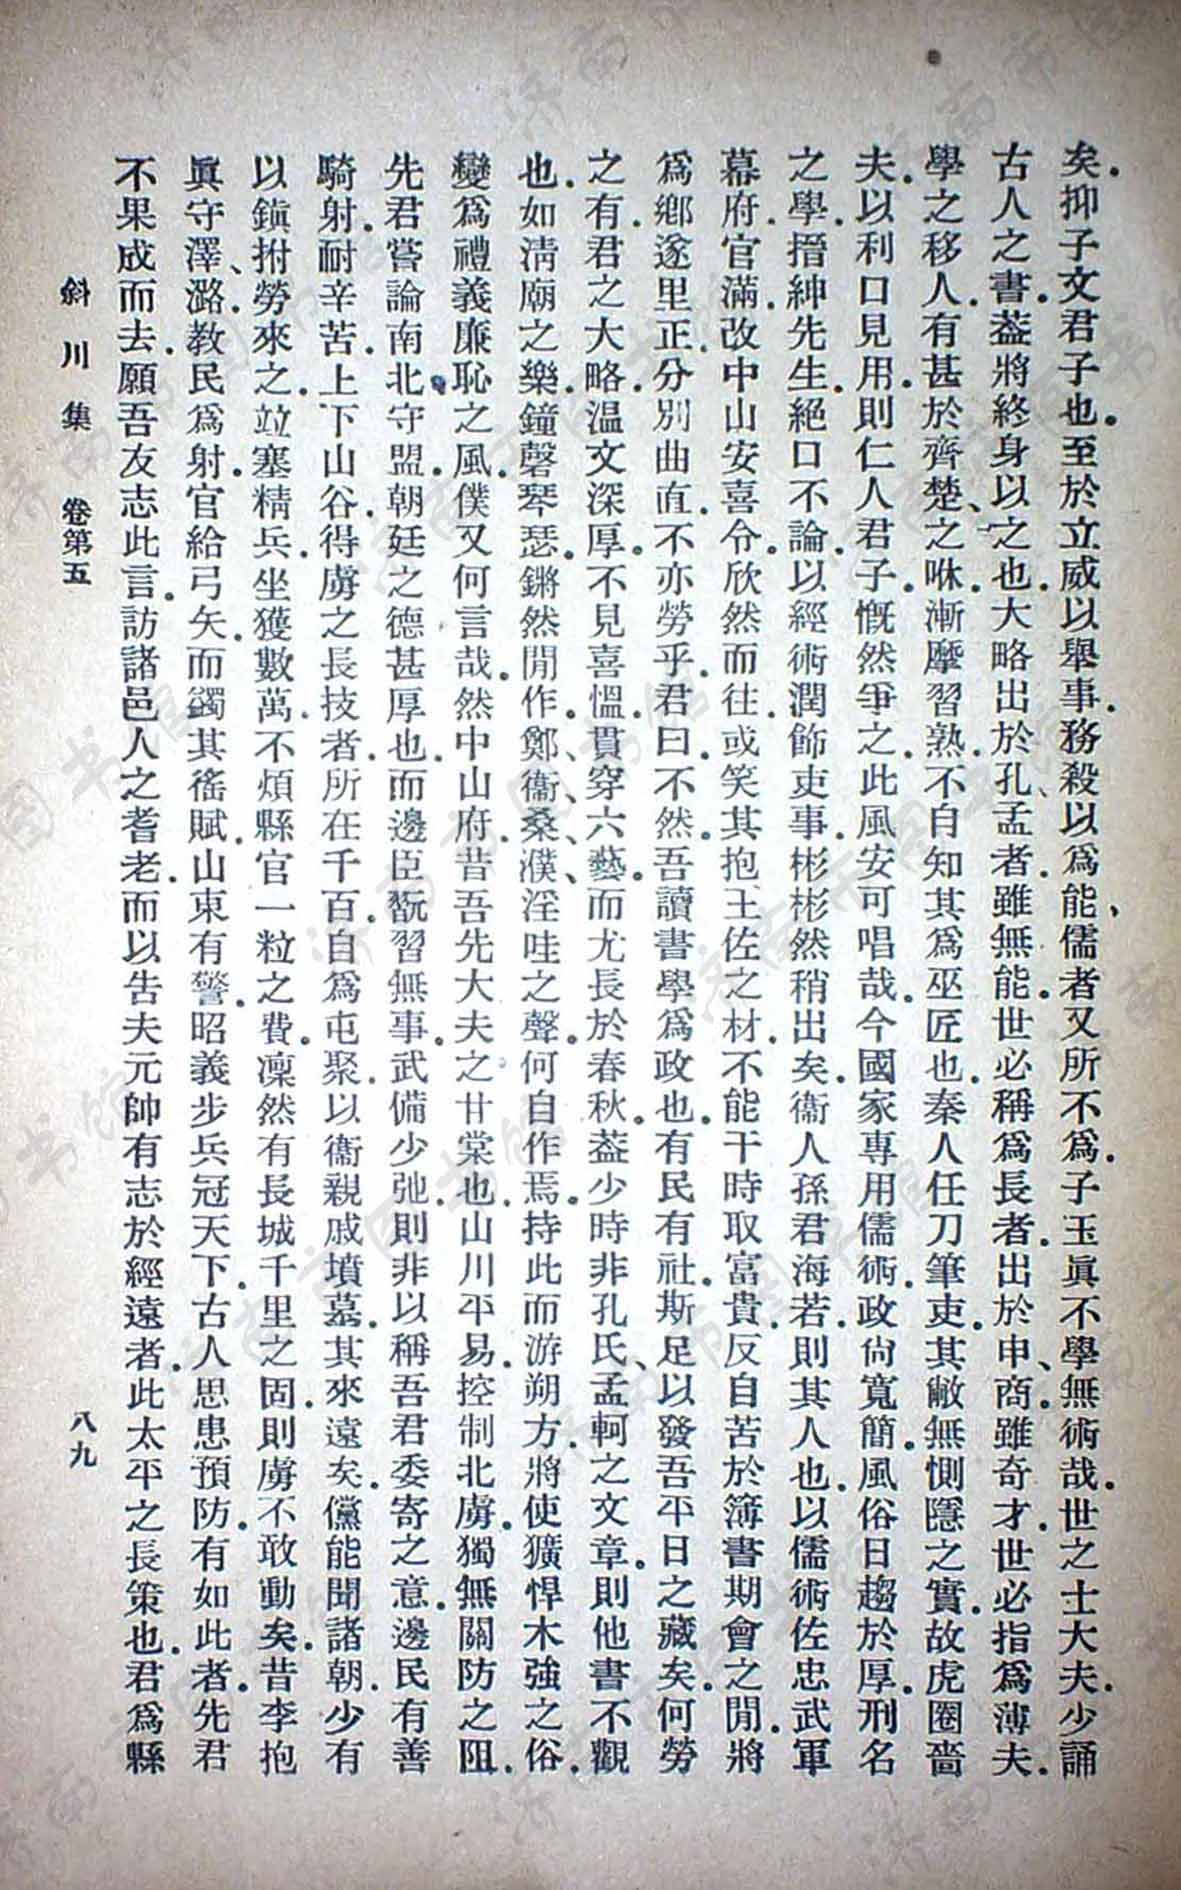 矣。抑子文君子也。至於立威以舉事。務殺以爲能、儒者又所不爲。子玉眞不學無術哉。世之士大夫。少誦
古人之書。葢將終身以之也。大略出於孔、孟者。雖無能。世必稱爲長者。出於申、商。雖奇才。世必指爲薄夫。
學之移人。有甚於齊、楚之咻。漸摩習熟。不自知其爲巫匠也。秦人任刀筆吏。其敝無惻隱之實。故虎圈嗇
夫。以利口見用。則仁人君子。慨然爭之。此風安可唱哉。今國家專用儒術。政尙寬簡。風俗日趨於厚。刑名
之學。搢紳先生。絕口不論。以經術潤飾吏事。彬彬然稍出矣。衞人孫君海若。則其人也。以儒術佐忠武軍
幕府。官滿。改中山安喜令。欣然而往。或笑其抱王佐之材。不能干時取富貴。反自苦於簿書期會之閒。將
爲鄉遂里正。分別曲直。不亦勞乎。君曰。不然。吾讀書學爲政也。有民有社。斯足以發吾平日之藏矣。何勞
之有。君之大略。溫文深厚。不見喜慍。貫穿六藝。而尤長於春秋。葢少時非孔氏、孟軻之文章。則他書不觀
也。如淸廟之樂。鐘磬琴瑟。鏘然閒作。鄭、衞、桑、濮、淫哇之聲。何自作焉。持此而游朔方。將使獷悍木強之俗。
變爲禮義廉恥之風。僕又何言哉。然中山府。昔吾先大夫之甘棠也。山川平易。控制北虜。獨無關防之阻。
先君嘗論南北守盟。朝廷之德甚厚也。而邊臣翫習無事。武備少弛。則非以稱吾君委寄之意。邊民有善
騎射。耐辛苦。上下山谷。得虜之長技者。所在千百。自爲屯聚。以衞親戚墳墓。其來遠矣。儻能聞諸朝。少有
以鎭拊勞來之。竝塞精兵。坐獲數萬。不煩縣官一粒之費。凜然有長城千里之固。則虜不敢動矣。昔李抱
眞守澤、潞。教民爲射。官給弓矢。而蠲其徭賦。山東有警。昭義步兵冠天下。古人思患預防。有如此者。先君
不果成而去。願吾友志此言。訪諸邑人之耆老。而以告夫元帥有志於經遠者。此太平之長策也。君爲縣
斜川集 卷第五 八九